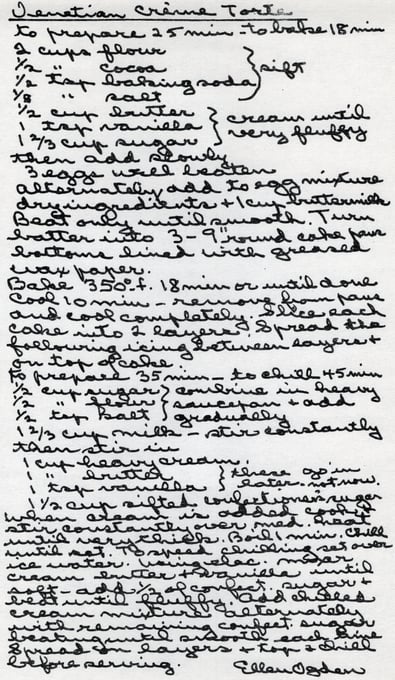 Venetian Crème Torte
to prepare 25 min - to bake 18 min
2 cups flour
1/2 " cocoa
1/2 tsp baking soda } sift
1/8 " salt
1/2 cup butter
1 tsp vanilla } cream until
1 2/3 cup sugar very fluffy
then add slowly
3 eggs well beaten
alternately add to egg mixture
dry ingredients + 1 cup buttermilk
Beat only until smooth. Turn
batter into 3 - 9" round cake pans
bottoms lined with greased
wax paper.
Bake 350° f. 18 min or until done
Cool 10 min - remove from pans
and cool completely. Slice each
cake into 2 layers. Spread the
following icing between layers +
on top of cake.
to prepare 35 min - to chill 45 min
1/2 cup sugar } combine in heavy
1/2 " flour saucepan + add
1/2 tsp salt gradually
1 2/3 cup milk - stir constantly
then stir in
1 cup heavy cream.
1 " butter } these go in
1 tsp vanilla later - not now.
1 1/2 cup sifted confectioner's sugar
when cream is added cook
stir constantly over med. heat
until very thick. Boil 1 min. Chill
until set. To speed chilling set over
ice water. Using elec. mixer
cream butter + vanilla until
soft - add 1/2 of confect. sugar +
beat until fluffy. Add chilled
cream mixture alternately
with remaining confect. sugar
beating until smooth each time
Spread on layers + top + chill
before serving. Ellen Ogden